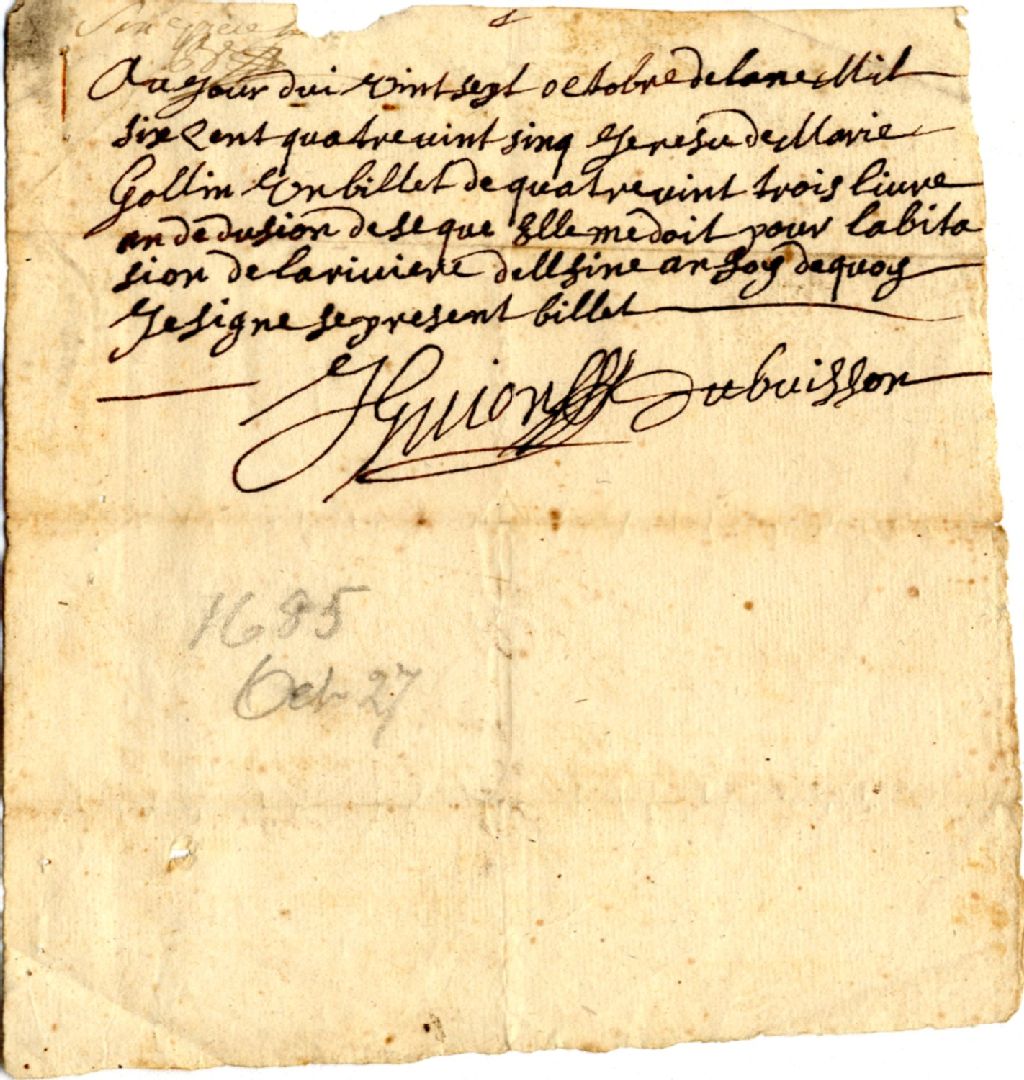 Au Jour dui Vint sept octobre de lane Mil
sixx Cent quatre vint sinq Je resu de Marie
Gollin Un billet de quatre vint trois livre
an dedusion de se que Elle me doit pour labita
sion de la riviere dellsine an foy de quoy
Je signe se present billet
JGuion Dubuisson
1685
Oct 27